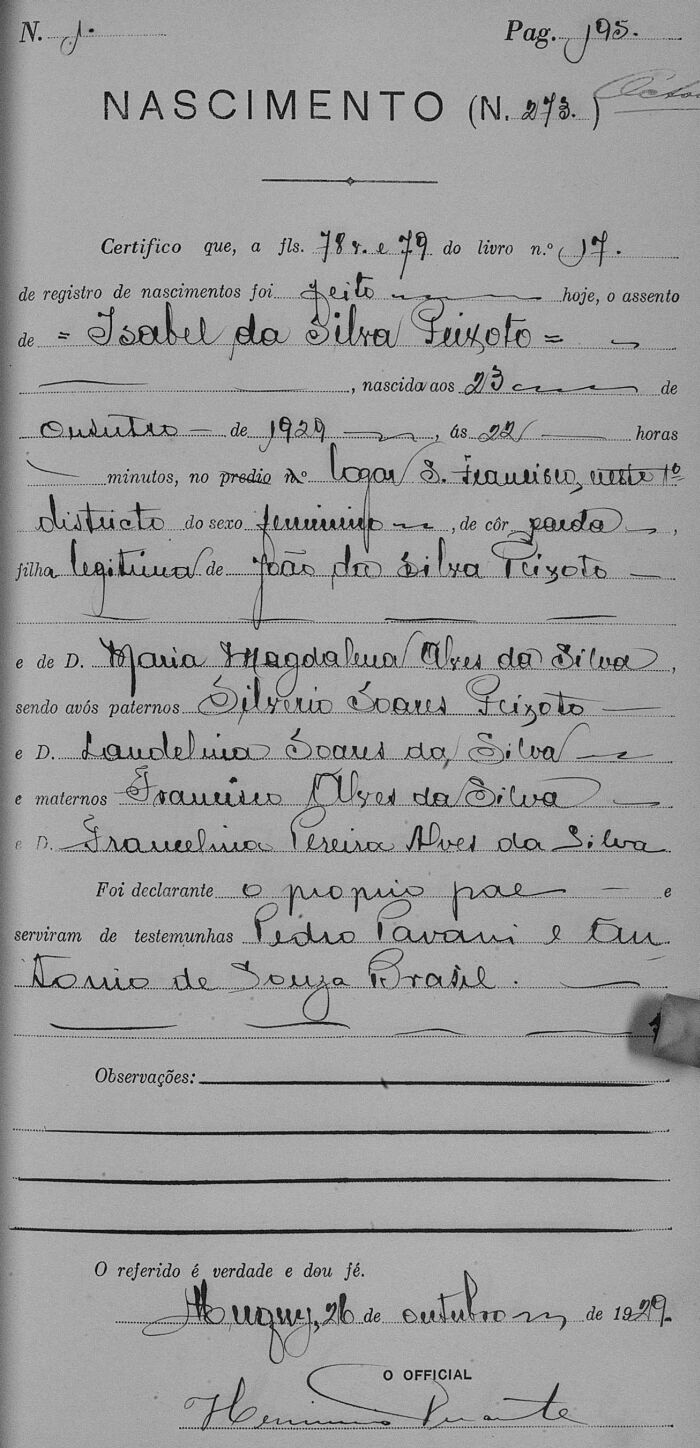 N. 1. Pag. 195.
NASCIMENTO (N. 273.)
Certifico que, a fls. 78v. e 79 do livro n.º 17.
de registro de nascimentos foi feito hoje, o assento
de = Isabel da Silva Peixoto =
, nascida aos 23 de
outubro de 1929, ás 22 horas
minutos, no predio nº logar S. Francisco, neste 1º
districto do sexo feminino, de côr parda,
filha legitima de João da Silva Peixoto
e de D. Maria Magdalena Alves da Silva,
sendo avós paternos Silverio Soares Peixoto
e D. Laudelina Soares da Silva
e maternos Francisco Alves da Silva
e D. Francelina Pereira Alves da Silva
Foi declarante o proprio pae e
serviram de testemunhas Pedro Pavani e An
tonio de Souza Brasil.
Observações:
O referido é verdade e dou fé.
Muquy, 26 de outubro de 1929.
O OFFICIAL